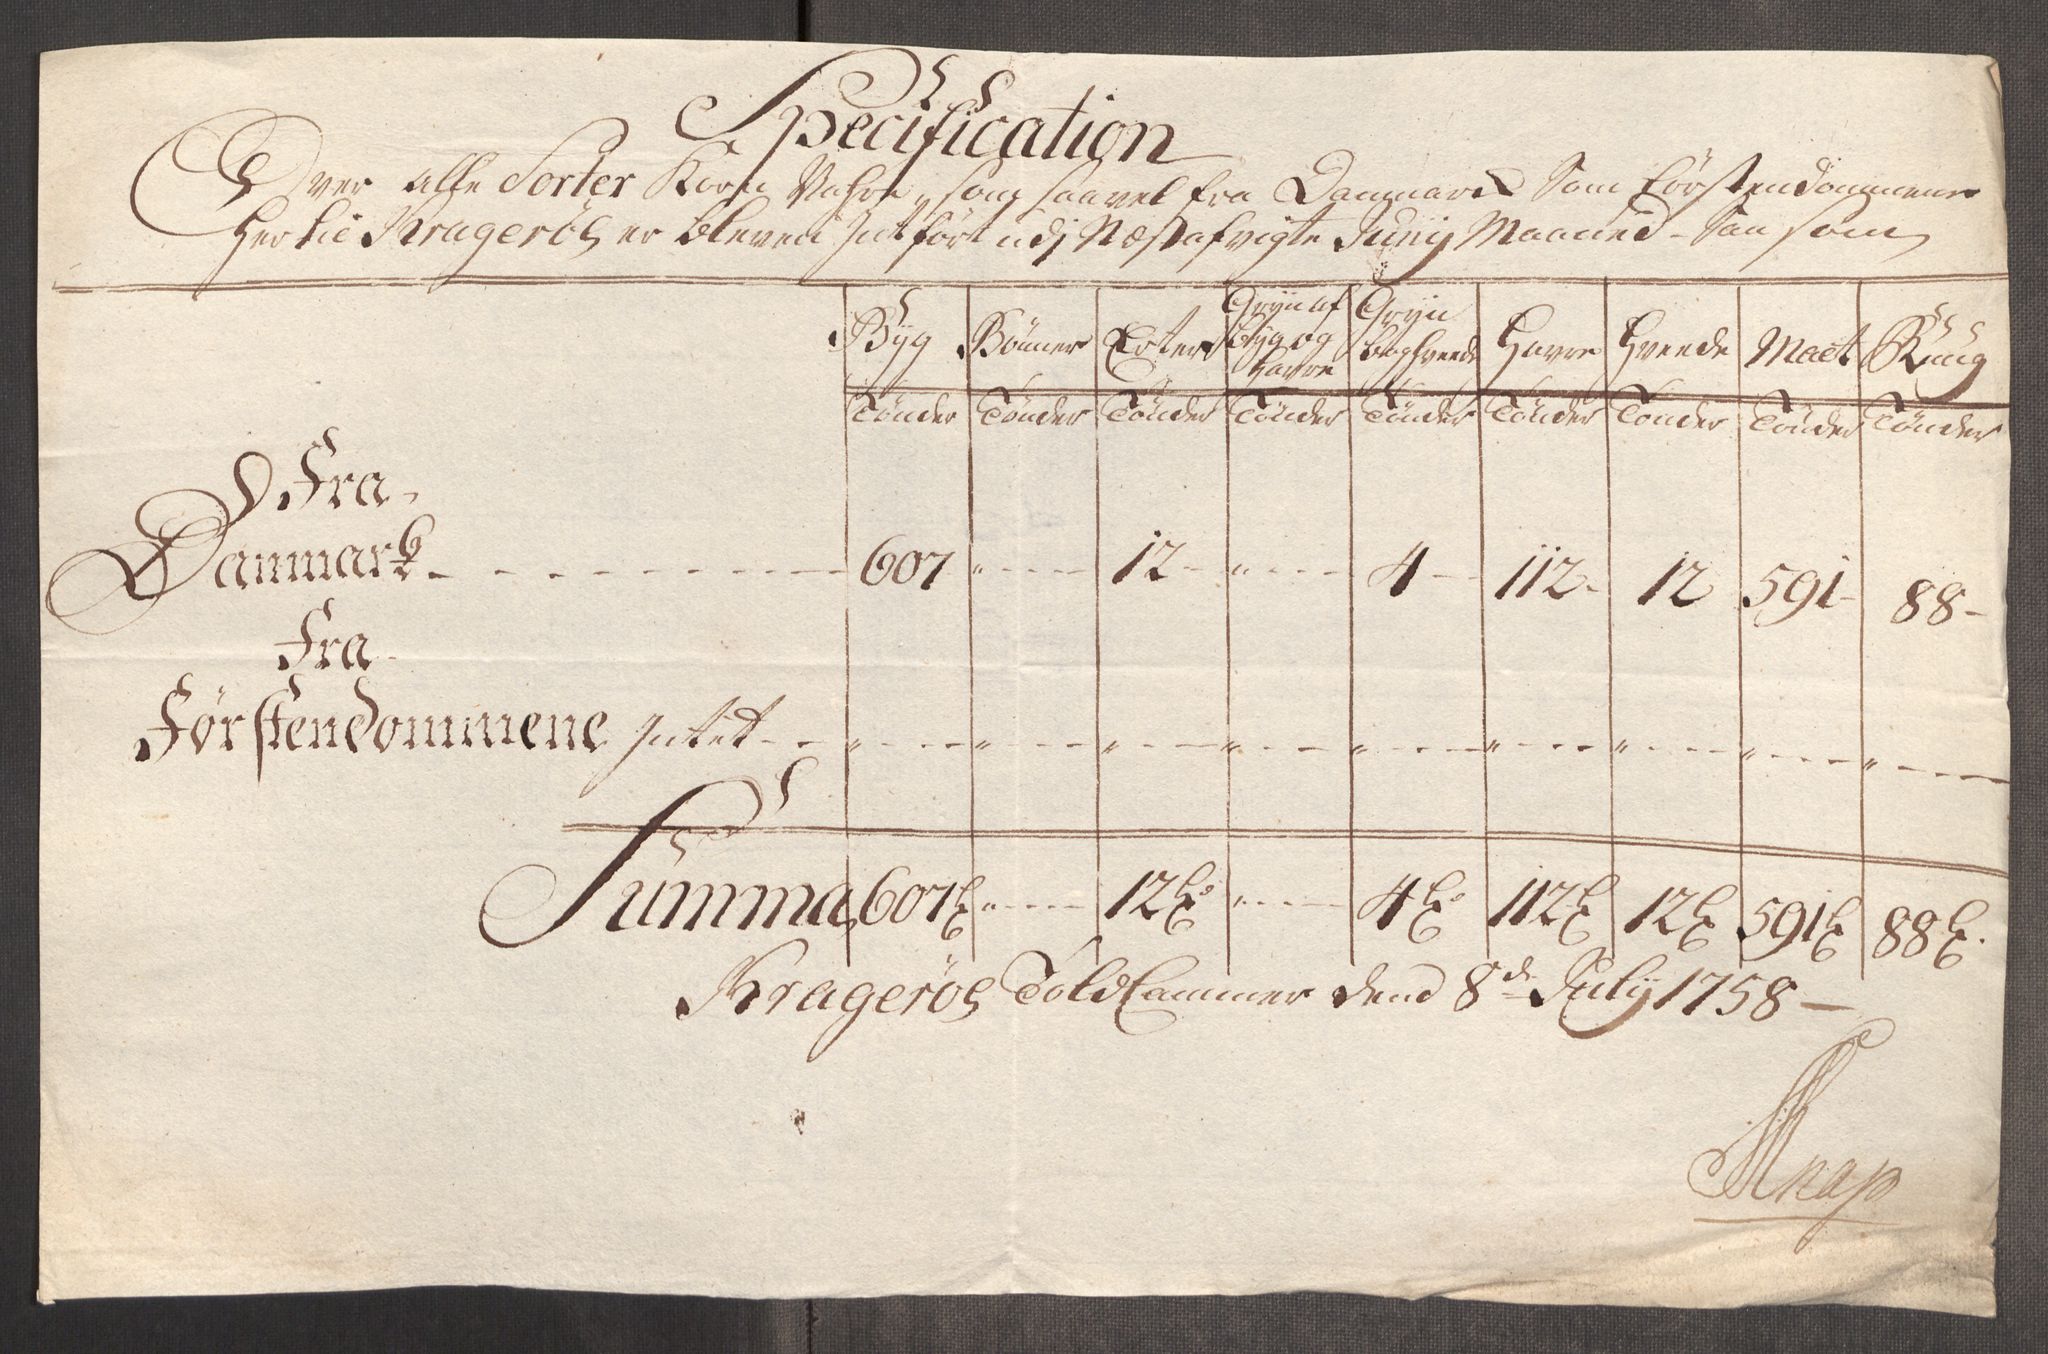 Specification
Over alle Sorter Korn Vahre, som saavel fra Danmark Som Førstendommene
Her til Krageröe er bleven Ind ført udj Næstafvigte Junij Maaned - Saasom
Byg Bönner Erter Gryn af byg og Havre Gryn boghveede Havre Hveede Malt Rug
Tönder Tönder Tönder Tönder Tönder Tönder Tönder Tönder Tönder
Fra
Danmark 607 " 12 " 4 112 12 591 88
Fra
Førstendommene Intet " " " " " " " " "
Summa 607 " 12 " 4 112 12 591 88
Krageröe Told Cammer dend 8de July 1758
Knap